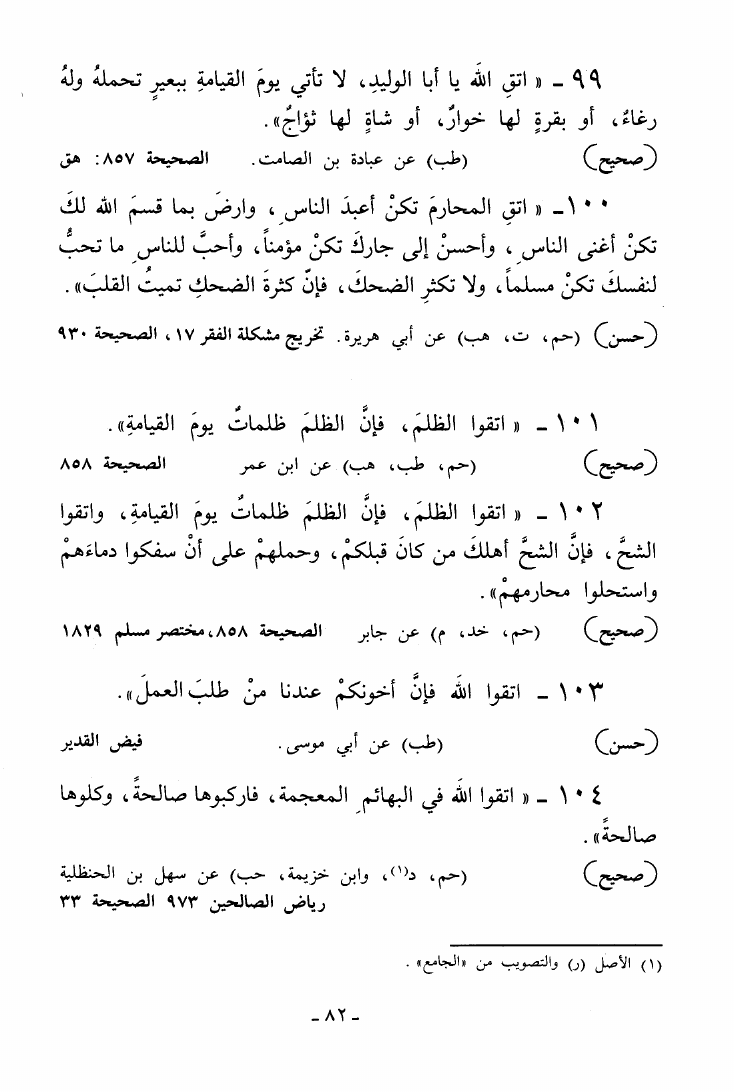 ٩٩ ـ « اتقِ اللهَ يا أبا الوليدِ، لا تأتي يومَ القيامةِ ببعيرٍ تحملهُ ولهُ
رغاءٌ، أو بقرةٍ لها خوارٌ، أو شاةٍ لها ثؤاجٌ».
(صحيح) (طب) عن عبادة بن الصامت. الصحيحة ٨٥٧: هق
١٠٠ـ « اتقِ المحارمَ تكنْ أعبدَ الناسِ، وارضَ بما قسمَ الله لكَ
تكنْ أغنى الناسِ، وأحسنْ إلى جاركَ تكنْ مؤمناً، وأحبَّ للناسِ ما تحبُّ
لنفسكَ تكنْ مسلماً، ولا تكثرِ الضحكَ، فإنّ كثرةَ الضحكِ تميتُ القلبَ».
(حسن) (حم، ت، هب) عن أبي هريرة. تخريج مشكلة الفقر ١٧، الصحيحة ٩٣٠
١٠١ ـ « اتقوا الظلمَ، فإنَّ الظلمَ ظلماتٌ يومَ القيامةِ».
(صحيح) (حم، طب، هب) عن ابن عمر الصحيحة ٨٥٨
١٠٢ ـ « اتقوا الظلمَ، فإنَّ الظلمَ ظلماتٌ يومَ القيامةِ، واتقوا
الشحَّ، فإنَّ الشحَّ أهلكَ من كانَ قبلكمْ، وحملهمْ على أنْ سفكوا دماءَهمْ
واستحلوا محارمهمْ».
(صحيح) (حم، خد، م) عن جابر الصحيحة ٨٥٨، مختصر مسلم ١٨٢٩
١٠٣ ـ اتقوا اللهَ فإنَّ أخونكمْ عندنا منْ طلبَ العملَ».
(حسن) (طب) عن أبي موسى. فيض القدير
١٠٤ ـ « اتقوا اللهَ في البهائمِ المعجمة، فاركبوها صالحةً، وكلوها
صالحةً».
(صحيح) (حم، د(١)، وابن خزيمة، حب) عن سهل بن الحنظلية
رياض الصالحين ٩٧٣ الصحيحة ٣٣
(١) الأصل (ر) والتصويب من «الجامع» .
ـ ٨٢ ـ